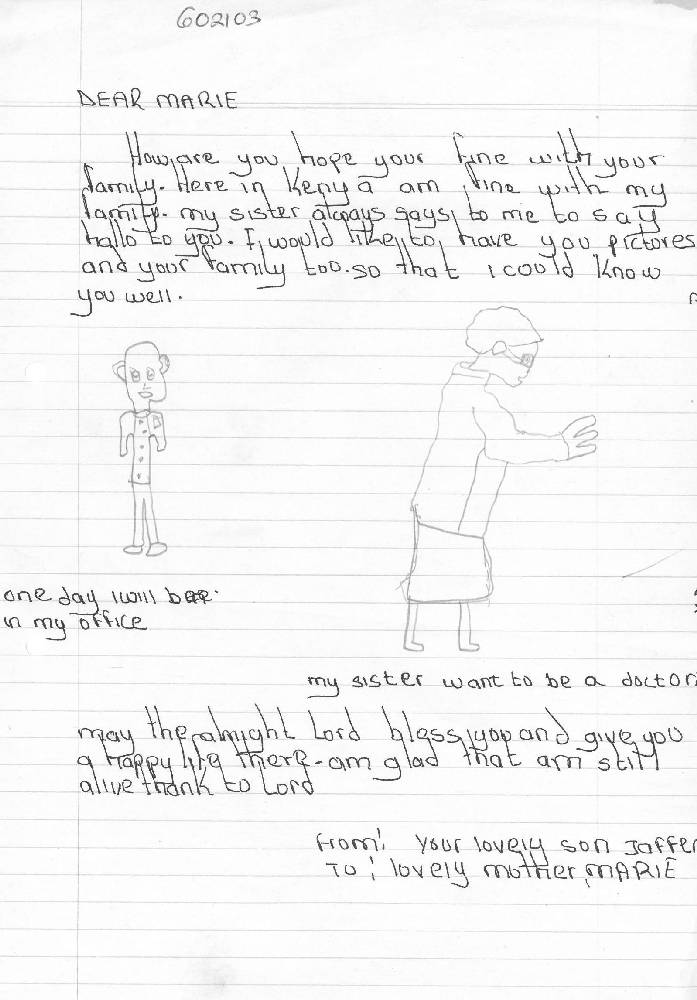 602103
DEAR MARIE
How are you, hope your fine with your
family. Here in Kenya am fine with my
family. my sister always says to me to say
hallo to you. I would like to have you pictures
and your family too. so that i could know
you well.
one day i will bee.
in my office
my sister want to be a doctor
may the almight Lord bless you and give you
a happy life there. am glad that am still
alive thank to Lord
From: your lovely son Jaffer
To: lovely mother, MARIE